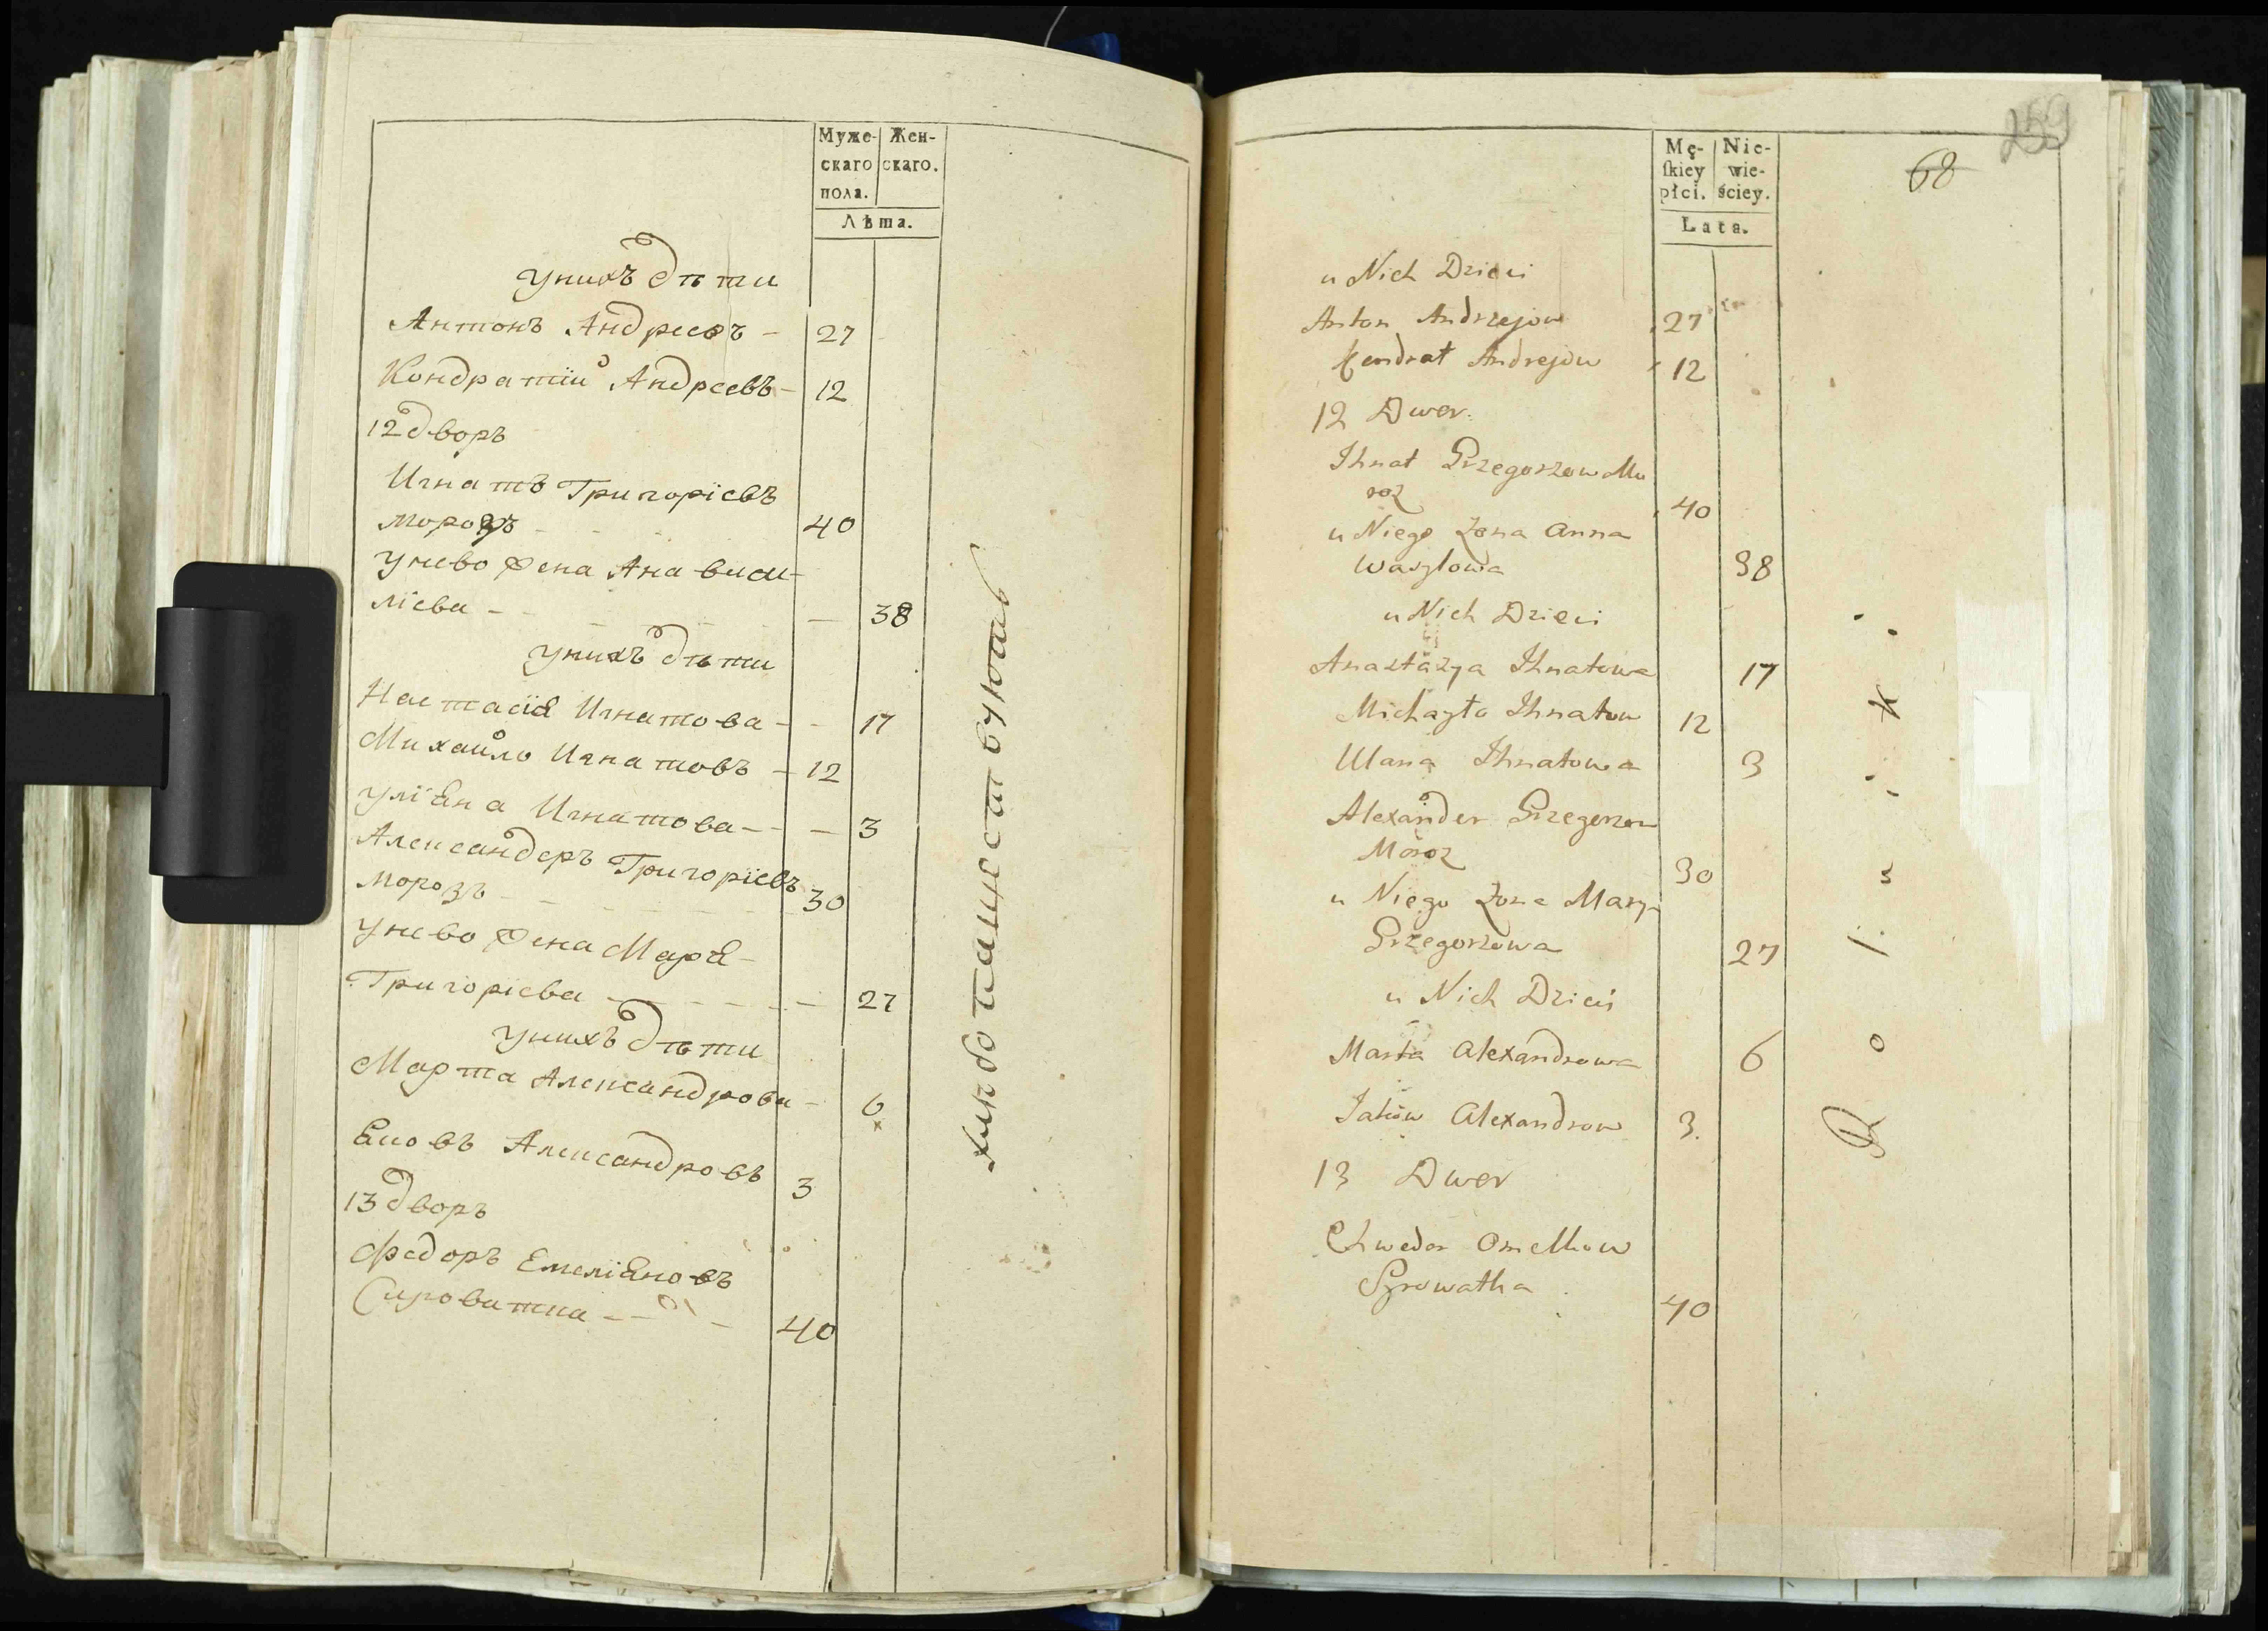 Муже-
скаго
пола.
Жен-
скаго.
Лѣта.
унихъ дѣти
Антонъ Андреевъ - 27
Кондратїй Андреевъ - 12
12 дворъ
Игнатъ Григорїевъ
Морозъ - - 40
унево жена Ана васи-
лїева - - 38
унихъ дѣти
Настасїя Игнатова - - 17
Михайло Игнатовъ - 12
улїяна Игнатова - - - 3
Александеръ Григорїевъ
Морозъ - - - 30
унево жена Маря
Григорїева - - - 27
унихъ дѣти
Марта Александрова - 6
Яковъ Александровъ 3
13 дворъ
Федоръ Емелїяновъ
Сироватка - - - 40
хлѣбопашествуютъ
259
68
Mę-
ſkiey
płci.
Nie-
wie-
ściey.
Lata.
u Nich Dzieci
Anton Andrzejow 27
Kondrat Andrejow 12
12 Dwor.
Ihnat Grzegorzow Mo
roz 40
u Niego Zona Anna
Wasylowa 38
u Nich Dzieci
Anastazya Ihnatowa 17
Michayło Ihnatow 12
Ulana Ihnatowa 3
Alexander Grzegorzow
Moroz 30
u Niego Zona Marya
Grzegorzowa 27
u Nich Dzieci
Marta Alexandrowa 6
Jakow Alexandrow 3.
13 Dwor
Chwedor Omelkow
Syrowatka 40